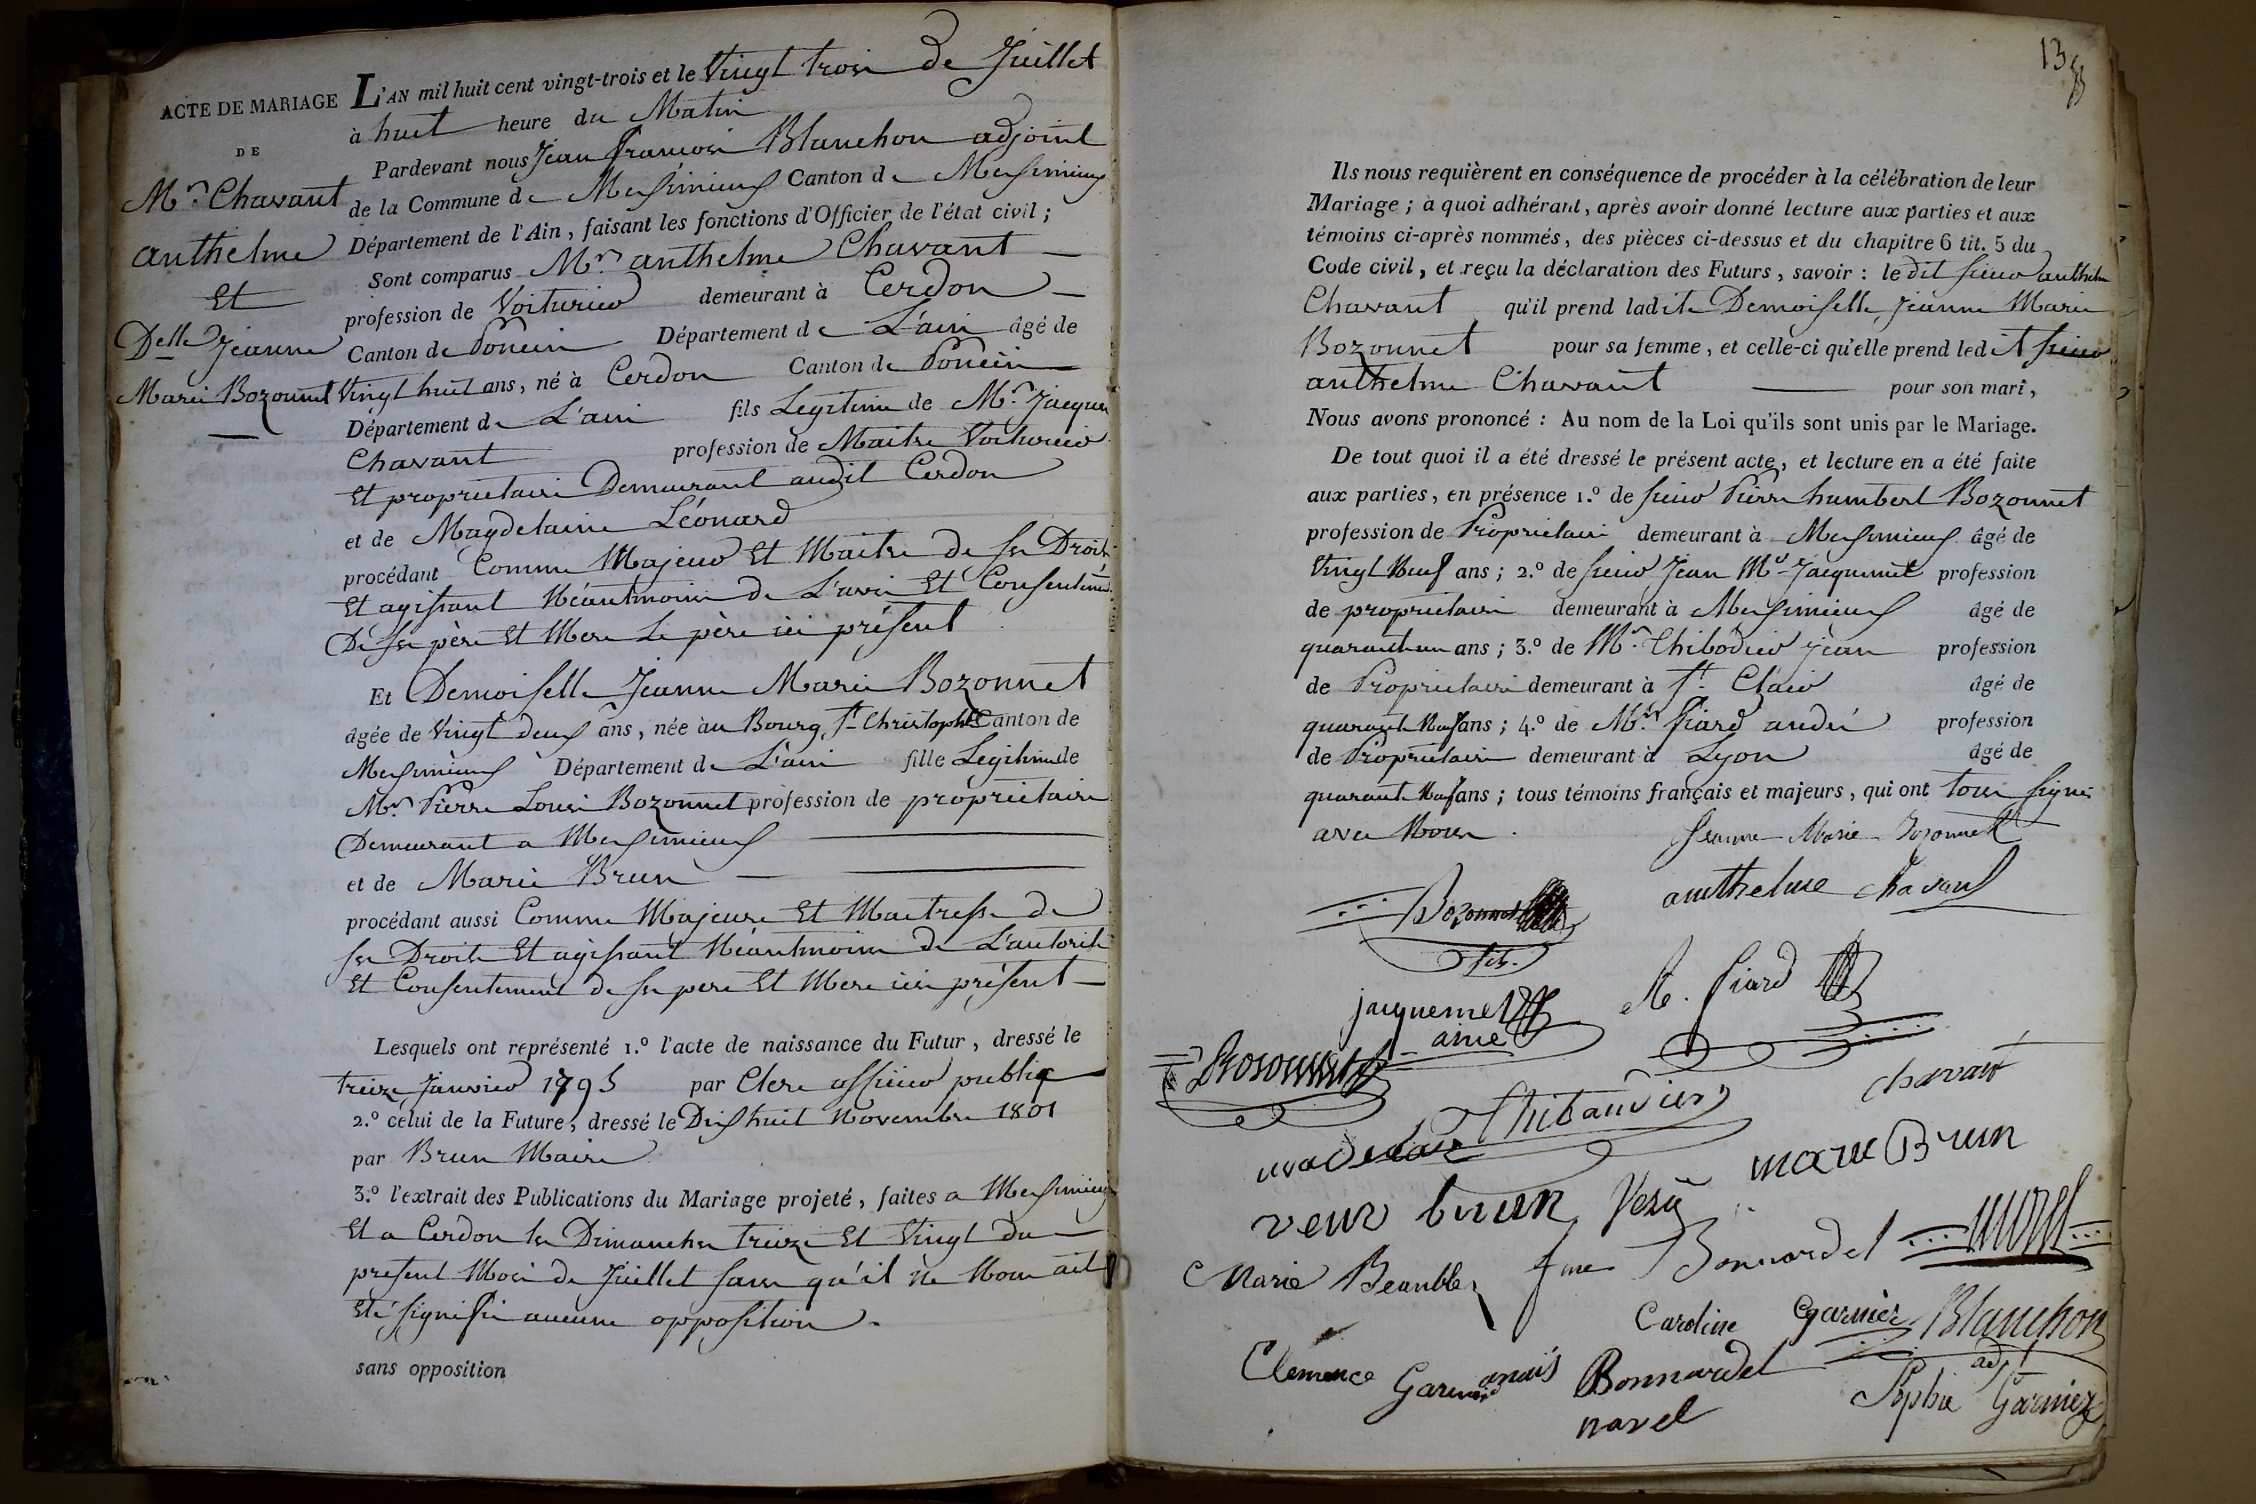 ACTE DE MARIAGE
DE
Mr. Chavant
anthelme
Et
Delle Jeanne
Marie Bozonnet
L'AN mil huit cent vingt-trois et le Vingt trois de Juillet
à huit heure du Matin
Pardevant nous Jean françois Blanchon adjoint
de la Commune de Meximieux Canton de Meximieux
Département de l'Ain, faisant les fonctions d'Officier de l'état civil;
Sont comparus Mr. anthelme Chavant
profession de Voiturier demeurant à Cerdon
Canton de Poncin Département de L'ain âgé de
Vingt huit ans, né à Cerdon Canton de Poncin
Département de L'ain fils Legitime de Mr. Jacques
Chavant profession de Maitre Voiturier
Et propriétaire Demeurant audit Cerdon
et de Magdelaine Léonard
procédant Comme Majeur Et Maitre de ses Droits
Et agissant Néantmoins de L'avis Et Consentemt
De ses père Et Mere Le père ici présent
Et Demoiselle Jeanne Marie Bozonnet
âgée de Vingt deux ans, née au Bourg St Christophe Canton de
Meximieux Département de L'ain fille Legitime de
Mr. Pierre Louis Bozonnet profession de propriétaire
Demeurant a Meximieux
et de Marie Brun
procédant aussi Comme Majeure Et Maitresse de
ses Droits Et agissant Néantmoins de L'autorité
Et Consentement de ses pere Et Mere ici présent
Lesquels ont représenté 1.º l'acte de naissance du Futur, dressé le
treize Janvier 1795 par Clerc officier public
2.º celui de la Future, dressé le Dix huit Novembre 1801
par Brun Maire
3.º l'extrait des Publications du Mariage projeté, faites a Meximieux
Et a Cerdon les Dimanches treize Et Vingt du
présent Mois de Juillet sans qu'il ne Nous ait
Eté signifié aucune opposition.
sans opposition
13
Ils nous requièrent en conséquence de procéder à la célébration de leur
Mariage; à quoi adhérant, après avoir donné lecture aux parties et aux
témoins ci-après nommés, des pièces ci-dessus et du chapitre 6 tit. 5 du
Code civil, et reçu la déclaration des Futurs, savoir: le dit sieur anthelme
Chavant qu'il prend ladite Demoiselle Jeanne Marie
Bozonnet pour sa femme, et celle-ci qu'elle prend ledit sieur
anthelme Chavant pour son mari,
Nous avons prononcé: Au nom de la Loi qu'ils sont unis par le Mariage.
De tout quoi il a été dressé le présent acte, et lecture en a été faite
aux parties, en présence 1.º de sieur Pierre humbert Bozonnet
profession de Propriétaire demeurant à Meximieux âgé de
Vingt Neuf ans; 2.º de sieur Jean Me Jacquemet profession
de propriétaire demeurant à Meximieux âgé de
quarante un ans; 3.º de Mr. Thibodier Jean profession
de Propriétaire demeurant à St. Clair âgé de
quarante Neuf ans; 4.º de Mr. Piard andré profession
de Propriétaire demeurant à Lyon âgé de
quarante Neuf ans; tous témoins français et majeurs, qui ont tous signé
avec Nous.
Jeanne Marie Bozonnet
Bozonnet
fils.
anthelme Chavant
jacquemet
ainé
A. Piard
Bozonnet
Thibaudier
chavant
veuve brun
marie Brun
Marie
fme Bonnardel
morel
Caroline Garnier
Blanchon
adj
Clemence Garnier
anaïs Bonnardel
navel
Sophie Garnier